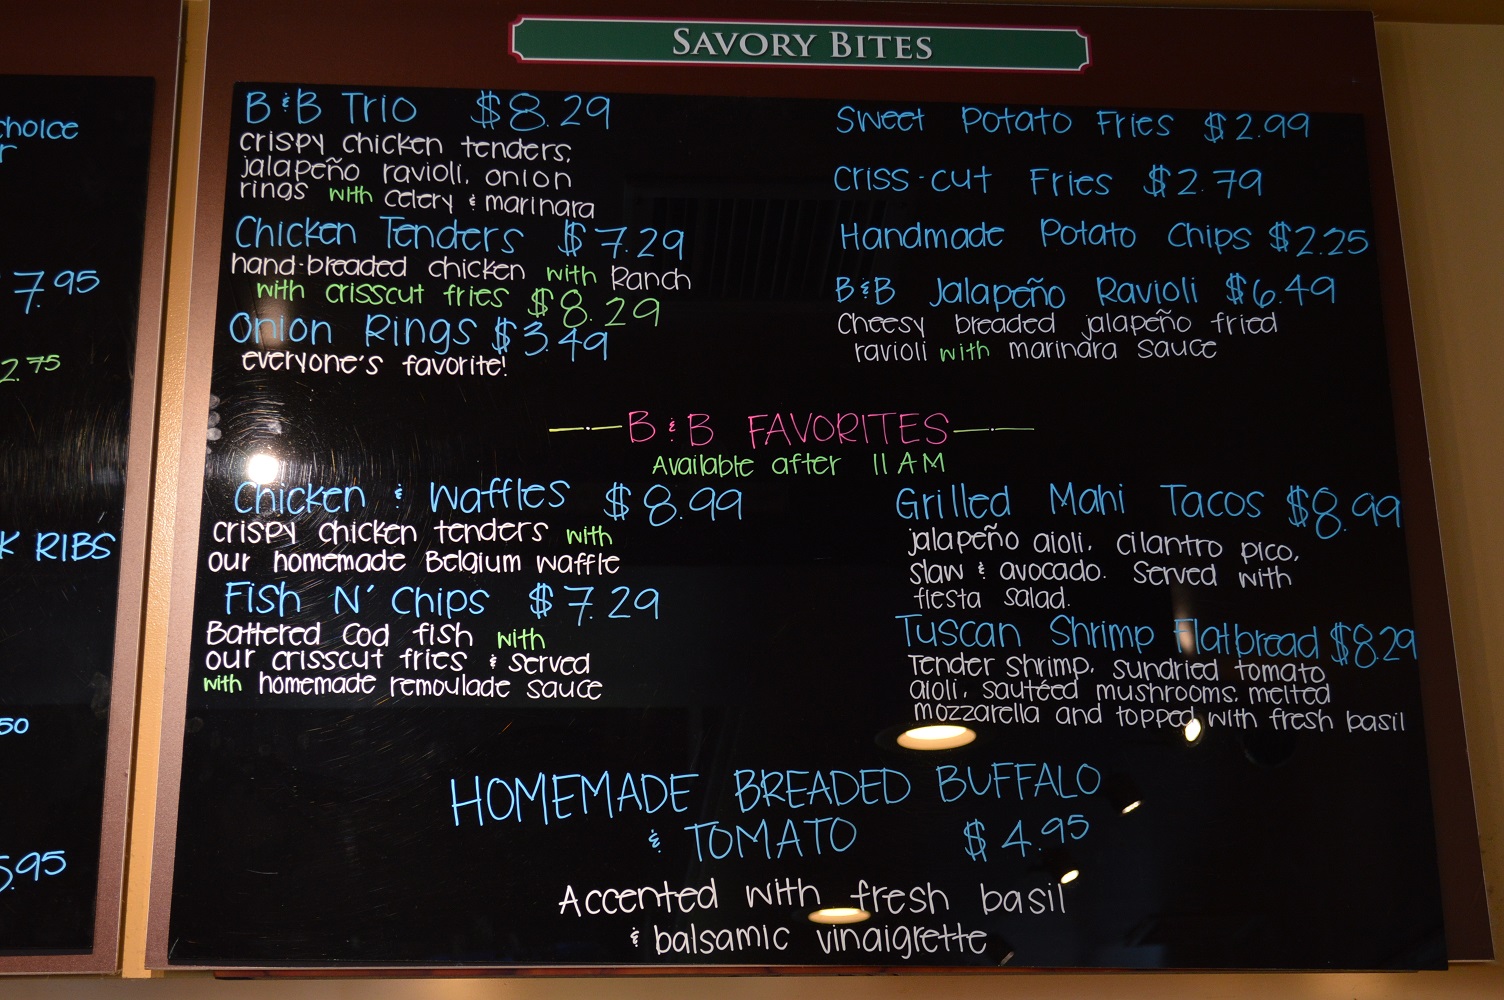 SAVORY BITES
choice
r
7.95
2.75
K RIBS
50
5.95
B & B Trio $8.29
crispy chicken tenders,
jalapeño ravioli, onion
rings with celery & marinara
Chicken Tenders $7.29
hand-breaded chicken with Ranch
with crisscut fries $8.29
Onion Rings $3.49
everyone's favorite!
Sweet Potato Fries $2.99
Criss-cut Fries $2.79
Handmade Potato Chips $2.25
B&B Jalapeño Ravioli $6.49
Cheesy breaded jalapeño fried
ravioli with marinara sauce
B & B FAVORITES
Available after 11 AM
Chicken & Waffles $8.99
crispy chicken tenders with
our homemade Belgium waffle
Fish N' Chips $7.29
Battered Cod fish with
our crisscut fries & served
with homemade remoulade sauce
Grilled Mahi Tacos $8.99
jalapeño aioli, cilantro pico,
slaw & avocado. Served with
fiesta salad.
Tuscan Shrimp Flatbread $8.29
Tender shrimp, sundried tomato
aioli, sautéed mushrooms, melted
mozzarella and topped with fresh basil
HOMEMADE BREADED BUFFALO
& TOMATO $4.95
Accented with fresh basil
& balsamic vinaigrette